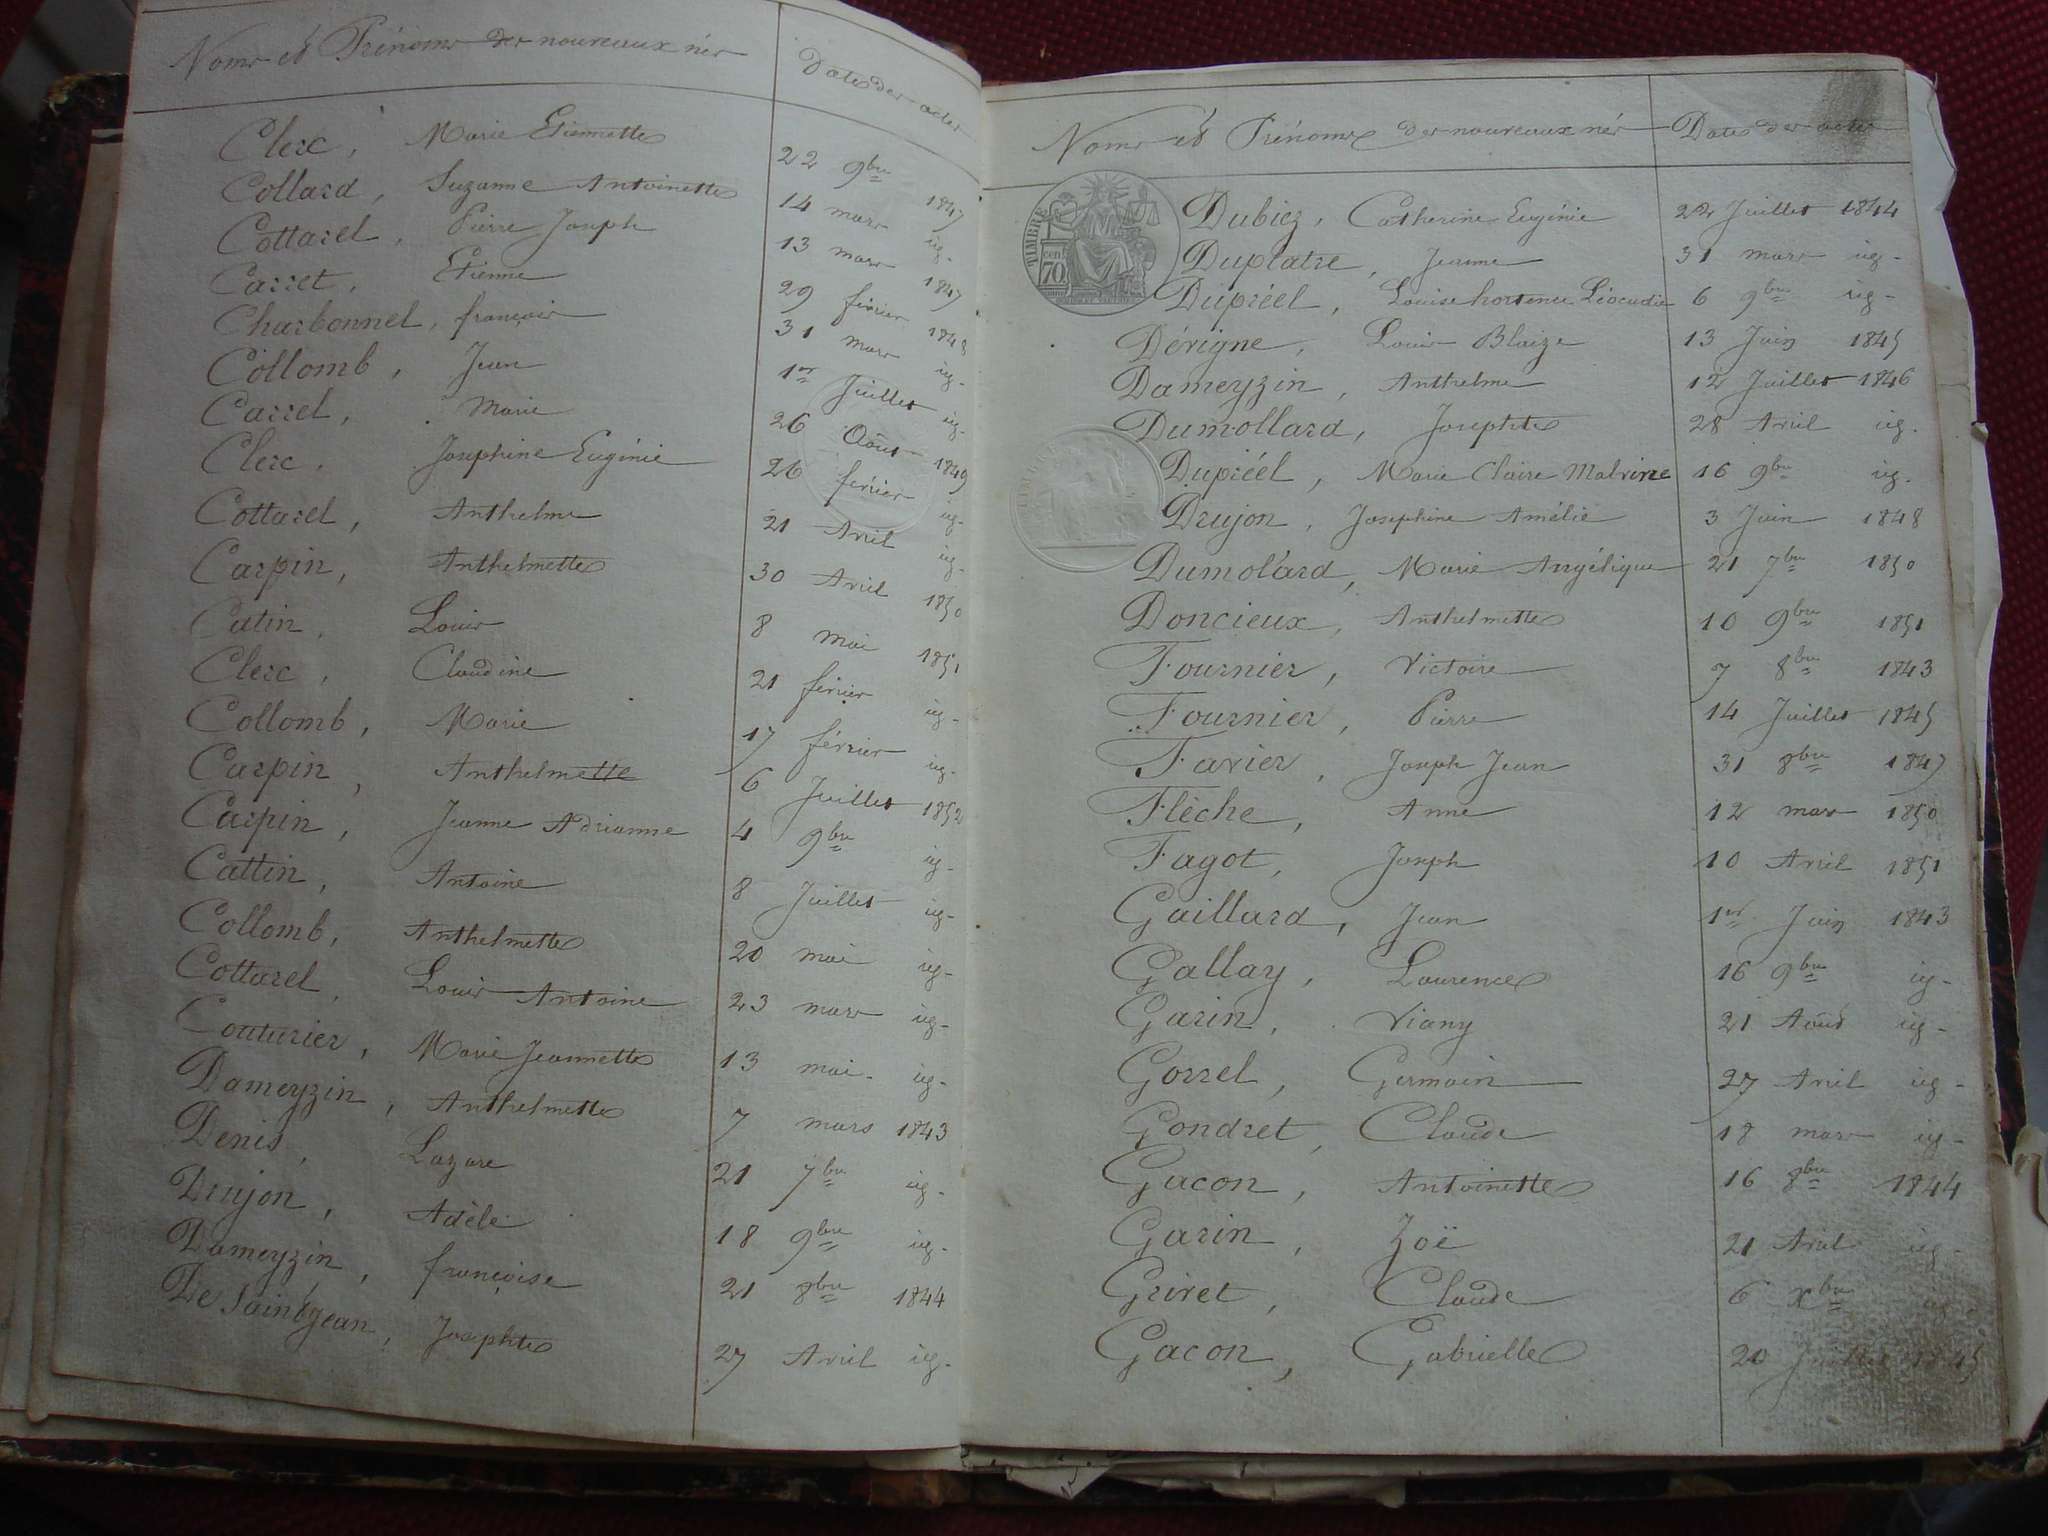 Noms et Prénoms des nouveaux nés Dates des actes
Clerc, Marie Etiennette 22 9bre 1847
Collard, Suzanne Antoinette 14 mars ig.
Cottarel, Pierre Joseph 13 mars 1847
Carret, Etienne 29 février 1848
Charbonnel, françois 31 mars ig.
Collomb, Jean 1er Juillet ig.
Carrel, Marie 26 Août 1849
Clerc, Josephine Eugénie 26 février ig.
Cottarel, Anthelme 21 Avril ig.
Carpin, Anthelmette 30 Avril 1850
Catin, Louis 8 mai 1851
Clerc, Claudine 21 février ig.
Collomb, Marie 17 février ig.
Carpin, Anthelmette 6 Juillet 1852
Carpin, Jeanne Adrianne 4 9bre ig.
Cattin, Antoine 8 Juillet ig.
Collomb, Anthelmette 20 mai ig.
Cottarel, Louis Antoine 23 mars ig.
Couturier, Marie Jeannette 13 mai ig.
Dameyzin, Anthelmette 7 mars 1843
Denis, Lazare 21 7bre ig.
Drujon, Adèle 18 9bre ig.
Dameyzin, françoise 21 8bre 1844
De Saint jean, Josephte 27 Avril ig.
Noms et Prénoms des nouveaux nés Dates des actes
TIMBRE
70 cen
Dubiez, Catherine Eugénie 22 Juillet 1844
Duplatre, Jeanne 31 mars ig.
Dupréel, Louise hortense Léocadie 6 9bre ig.
Dérigne, Louis Blaize 13 Juin 1845
Dameyzin, Anthelme 12 Juillet 1846
Dumollard, Josephte 28 Avril ig.
Dupréel, Marie Claire Malvine 16 9bre ig.
Drujon, Josephine Amélie 3 Juin 1848
Dumolard, Marie Angélique 21 7bre 1850
Doncieux, Anthelmette 10 9bre 1851
Fournier, Victoire 7 8bre 1843
Fournier, Pierre 14 Juillet 1845
Favier, Joseph Jean 31 8bre 1847
Flèche, Anne 12 mars 1850
Fagot, Joseph 10 Avril 1851
Gaillard, Jean 1er Juin 1843
Gallay, Laurence 16 9bre ig.
Garin, Viany 21 Août ig.
Gorrel, Germain 27 Avril ig.
Gondret, Claude 18 mars ig.
Gacon, Antoinette 16 8bre 1844
Garin, Zoë 21 Avril ig.
Griret, Claude 6 Xbre ig.
Gacon, Gabrielle 20 Juillet 1845